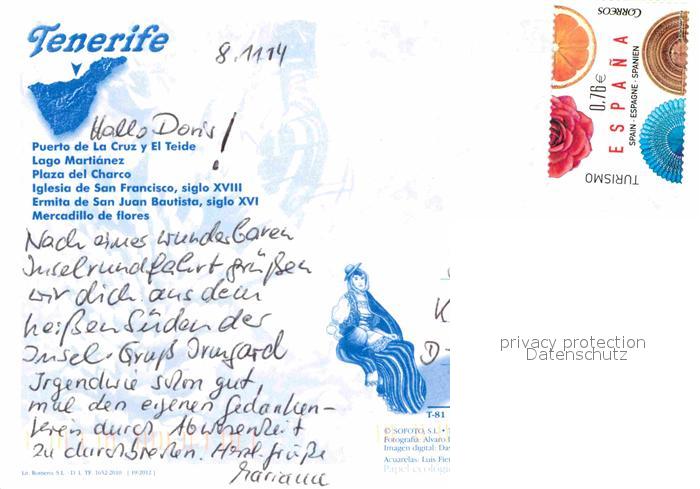 Tenerife
8.11.14
Hallo Doris!
Puerto de La Cruz y El Teide
Lago Martiánez
Plaza del Charco
Iglesia de San Francisco, siglo XVIII
Ermita de San Juan Bautista, siglo XVI
Mercadillo de flores
Nach eines wunderbaren
Inselrundfahrt grüßen
wir dich aus dem
heißen Süden der
Insel. Gruß Irmgard
Irgendwie schon gut,
mal den eigenen Gedanken-
kreis durch Abwesenheit
zu durchbrechen. Herzl. Grüße
Mariama
Lit. Romero, S.L. · D. L. TF. 1652-2010 [19/2012]
CORREOS
0,76€
ESPAÑA
SPAIN · ESPAGNE · SPANIEN
TURISMO
K
D-
privacy protection
Datenschutz
T-81
© SOFOTO, S.L. ·
Fotografía: Alvaro
Imagen digital: Da
Acuarelas: Luis Fie
Papel ecológic